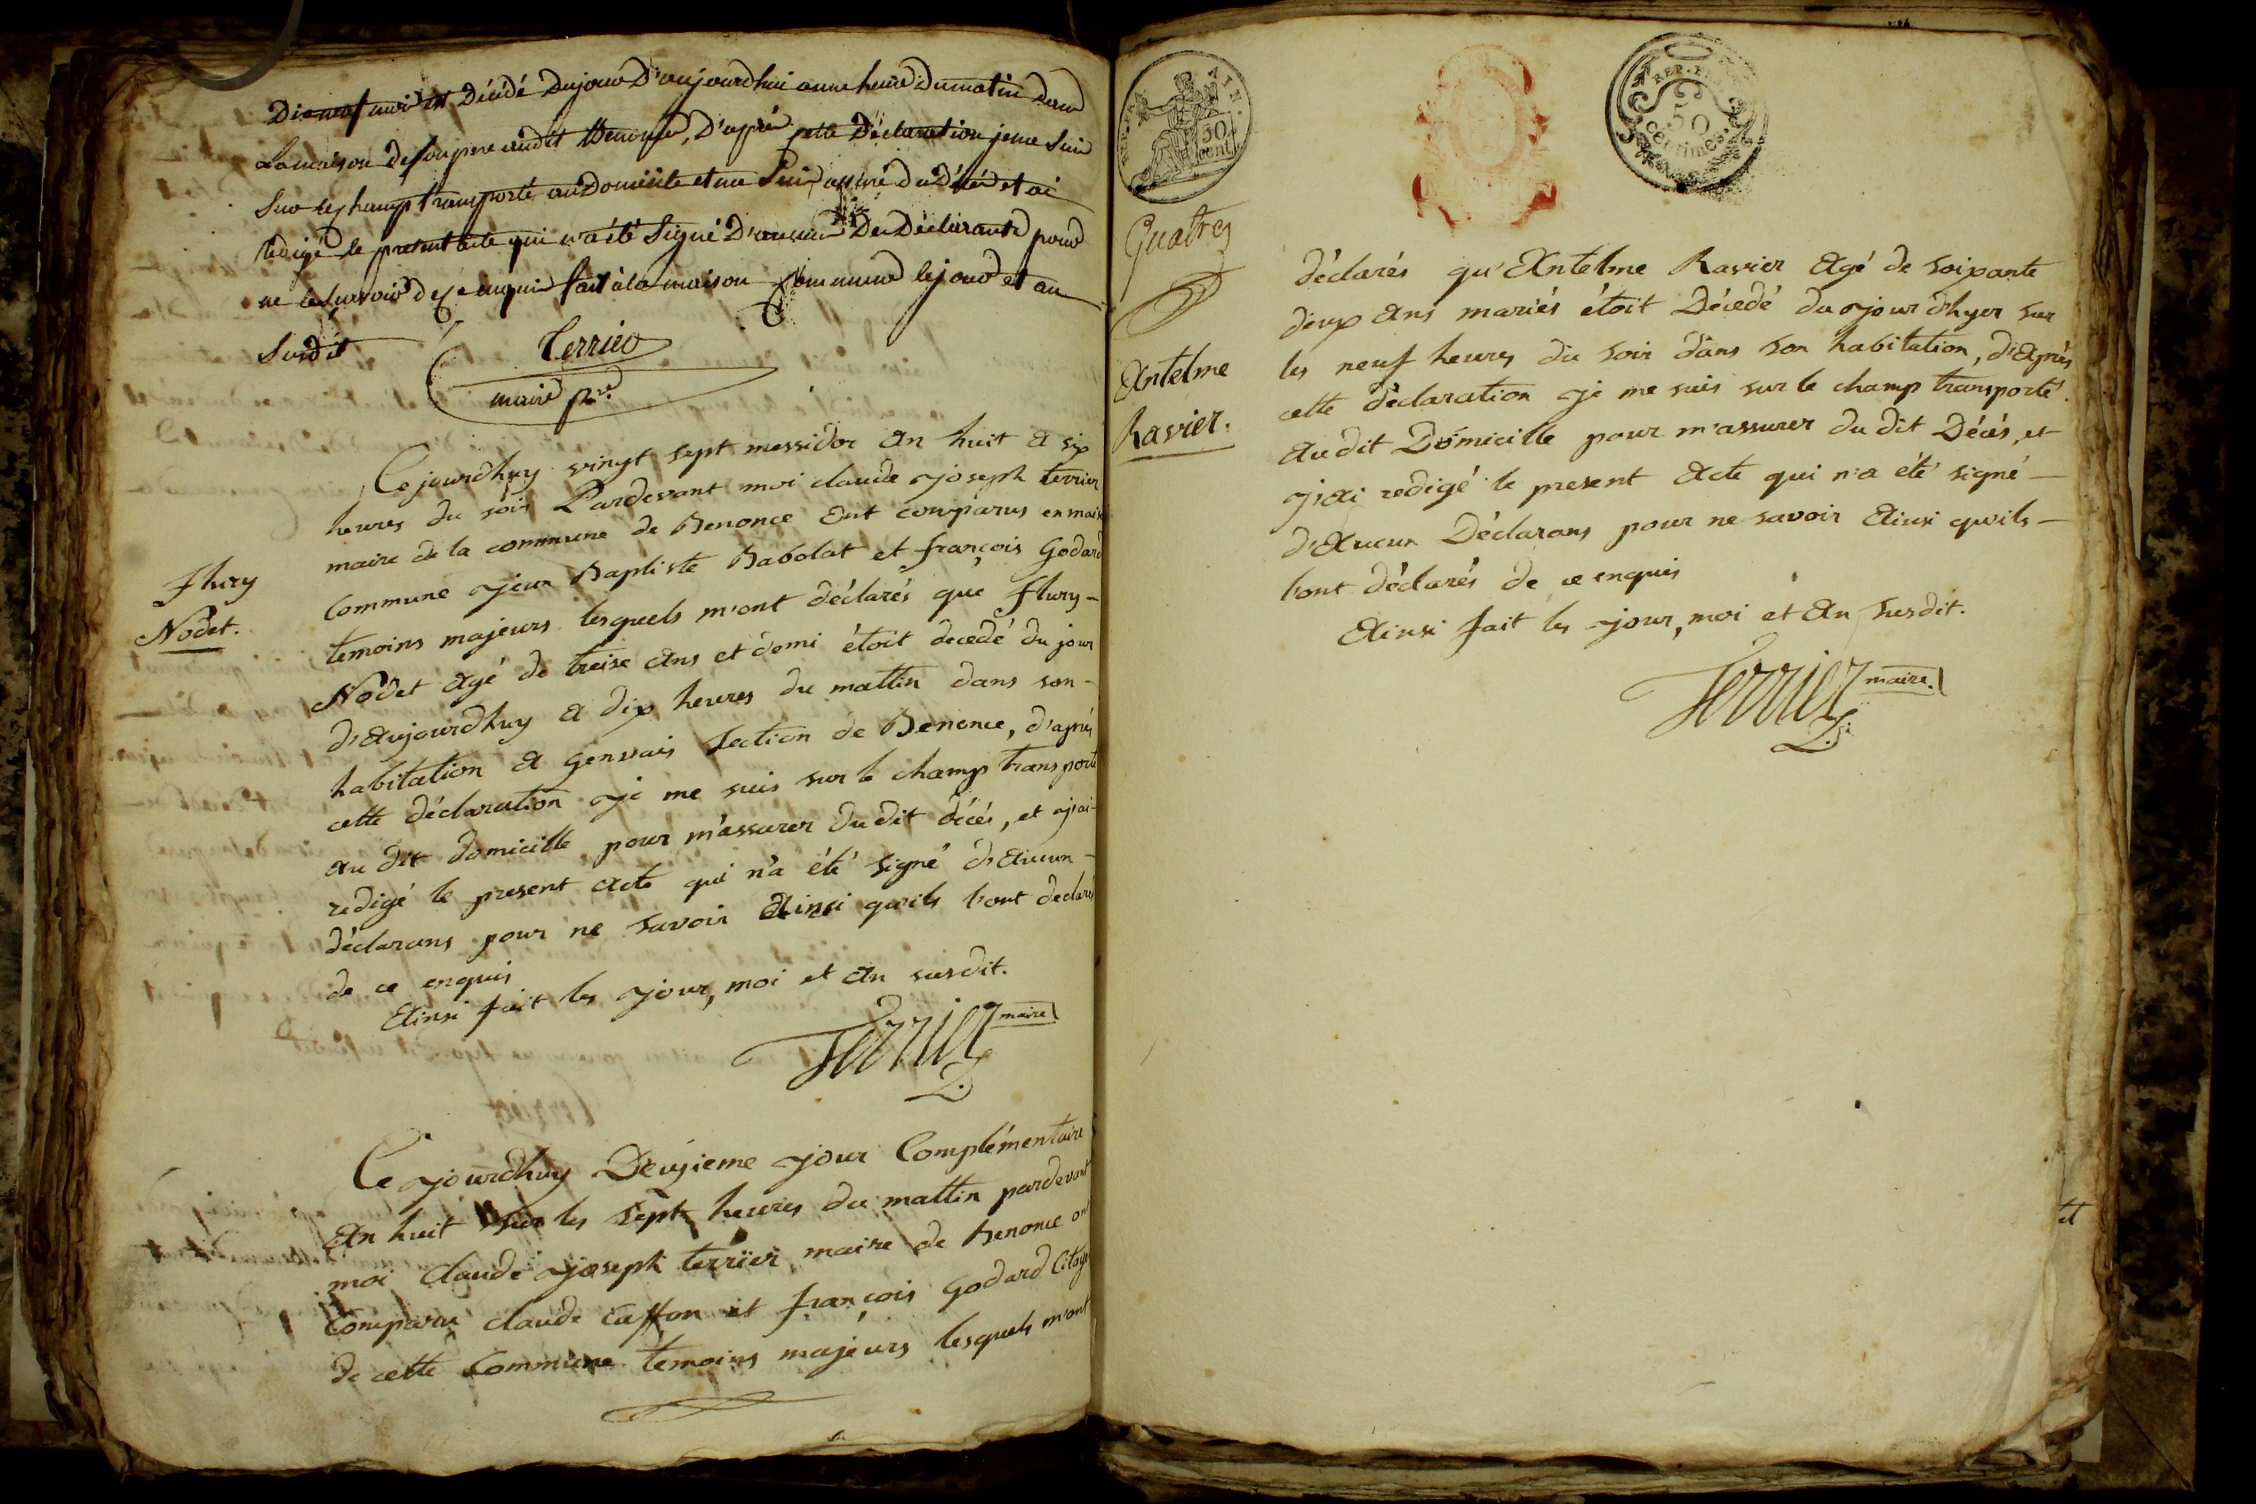 Dieneuf mois est Décédé Dujour D'aujourdhui aune heure Dumatin dans
la maison de son pere audit Benonce, D'après cette Déclaration je me suis
sur le champ transporté au Domicile et me suis assuré du Décé et ai
rédigé le present acte qui n'a été signé D'aucun Des Déclarants pour
ne le savoir de ce enquis fait à la maison commune le jour et an
susdit
Terrier
maire
Ce jourdhuy vingt sept messidor an huit a six
heures du soir Pardevant moi claude joseph terrier
maire de la commune de Benonce ont comparus en maison
Commune jean Baptiste Babolat et françois Godard
temoins majeurs lesquels m'ont déclarés que flury-
Nodet agé de treise ans et demi étoit decedé du jour
d'aujourdhuy a dix heures du mattin dans son-
habitation a Genvais Section de Benonce, d'après
cette déclaration je me suis sur le champ transporté
au dit domicille pour m'assurer du dit décés, et j'ai-
redigé le present acte qui n'a été signé d'aucun-
déclarans pour ne savoir ainsi qu'ils l'ont declarés
de ce enquis
Ainsi fait les jour, moi et an susdit.
Flury
Nodet.
Terrier maire
Ce jourdhuy Deuxieme jour Complémentaire
an huit sur les sept heures du mattin pardevant
moi Claude joseph terrier maire de Benonce ont
Comparu claude caffon et françois Godard Citoyens
de cette Commune temoins majeurs lesquels m'ont
REP. FRA
30
cent.
REP. FRA
50
centimes.
Quatres
Antelme
Ravier.
déclarés qu'Antelme Ravier agé de soixante
deux ans mariés étoit Décedé du jour d'hyer sur
les neuf heures du soir dans son habitation, d'après
cette déclaration je me suis sur le champ transporté
audit Domicille pour m'assurer du dit Décés, et
j'ai redigé le present acte qui n'a été signé-
d'aucun Déclarans pour ne savoir ainsi qu'ils-
l'ont déclarés de ce enquis
Ainsi fait les jour, moi et an susdit.
Terrier maire.